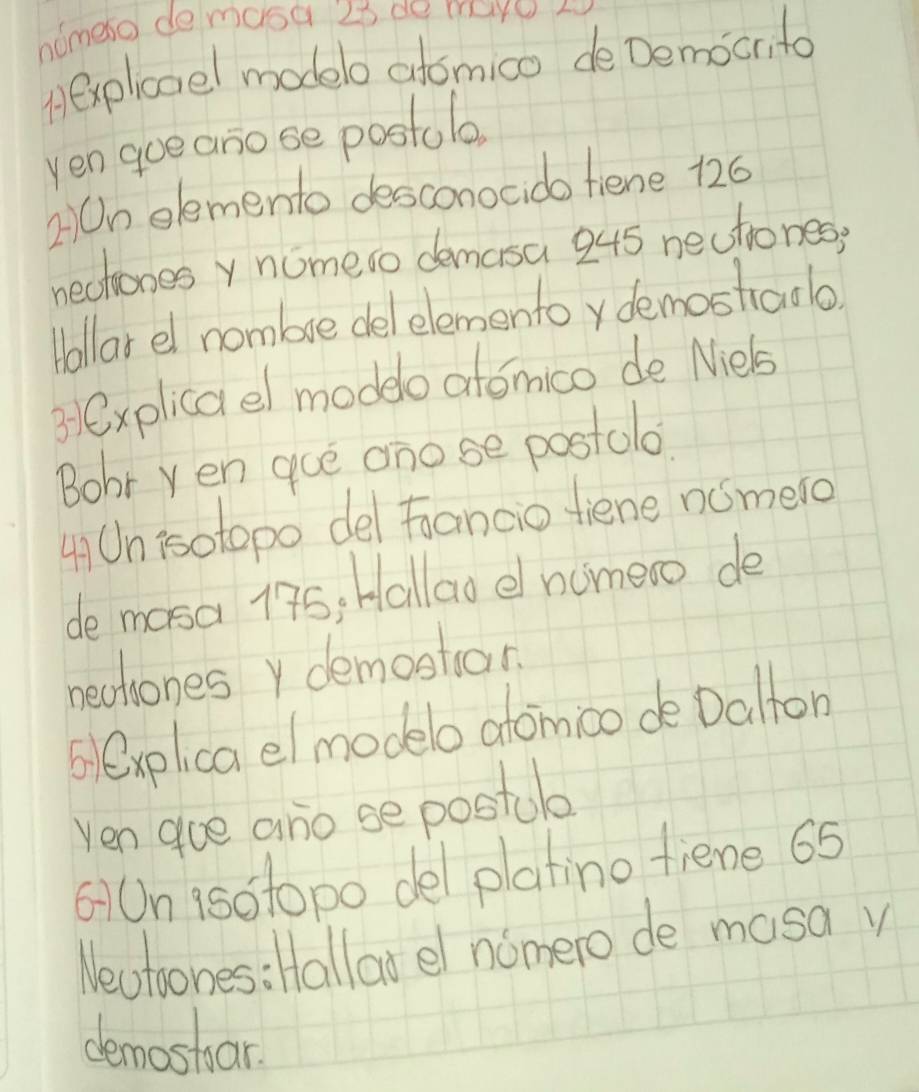 número de masa 23 de mayo
1-)explicael modelo atómico de Demócrito
yen que año se postulo.
2-)Un elemento desconocido tiene 126
neutrones y número demasa 245 neutrones;
Hallar el nombre del elemento y demostrarlo.
3-)Explica el modelo atómico de Niels
Bohr y en qué año se postuló.
4-)Un isotopo del francio tiene número
de masa 175; Hallar el número de
neutrones y demostrar.
5-)Explica el modelo atómico de Dalton
yen que año se postulo
6-)Un isótopo del platino tiene 65
Neutrones: Hallar el número de masa y
demostrar.